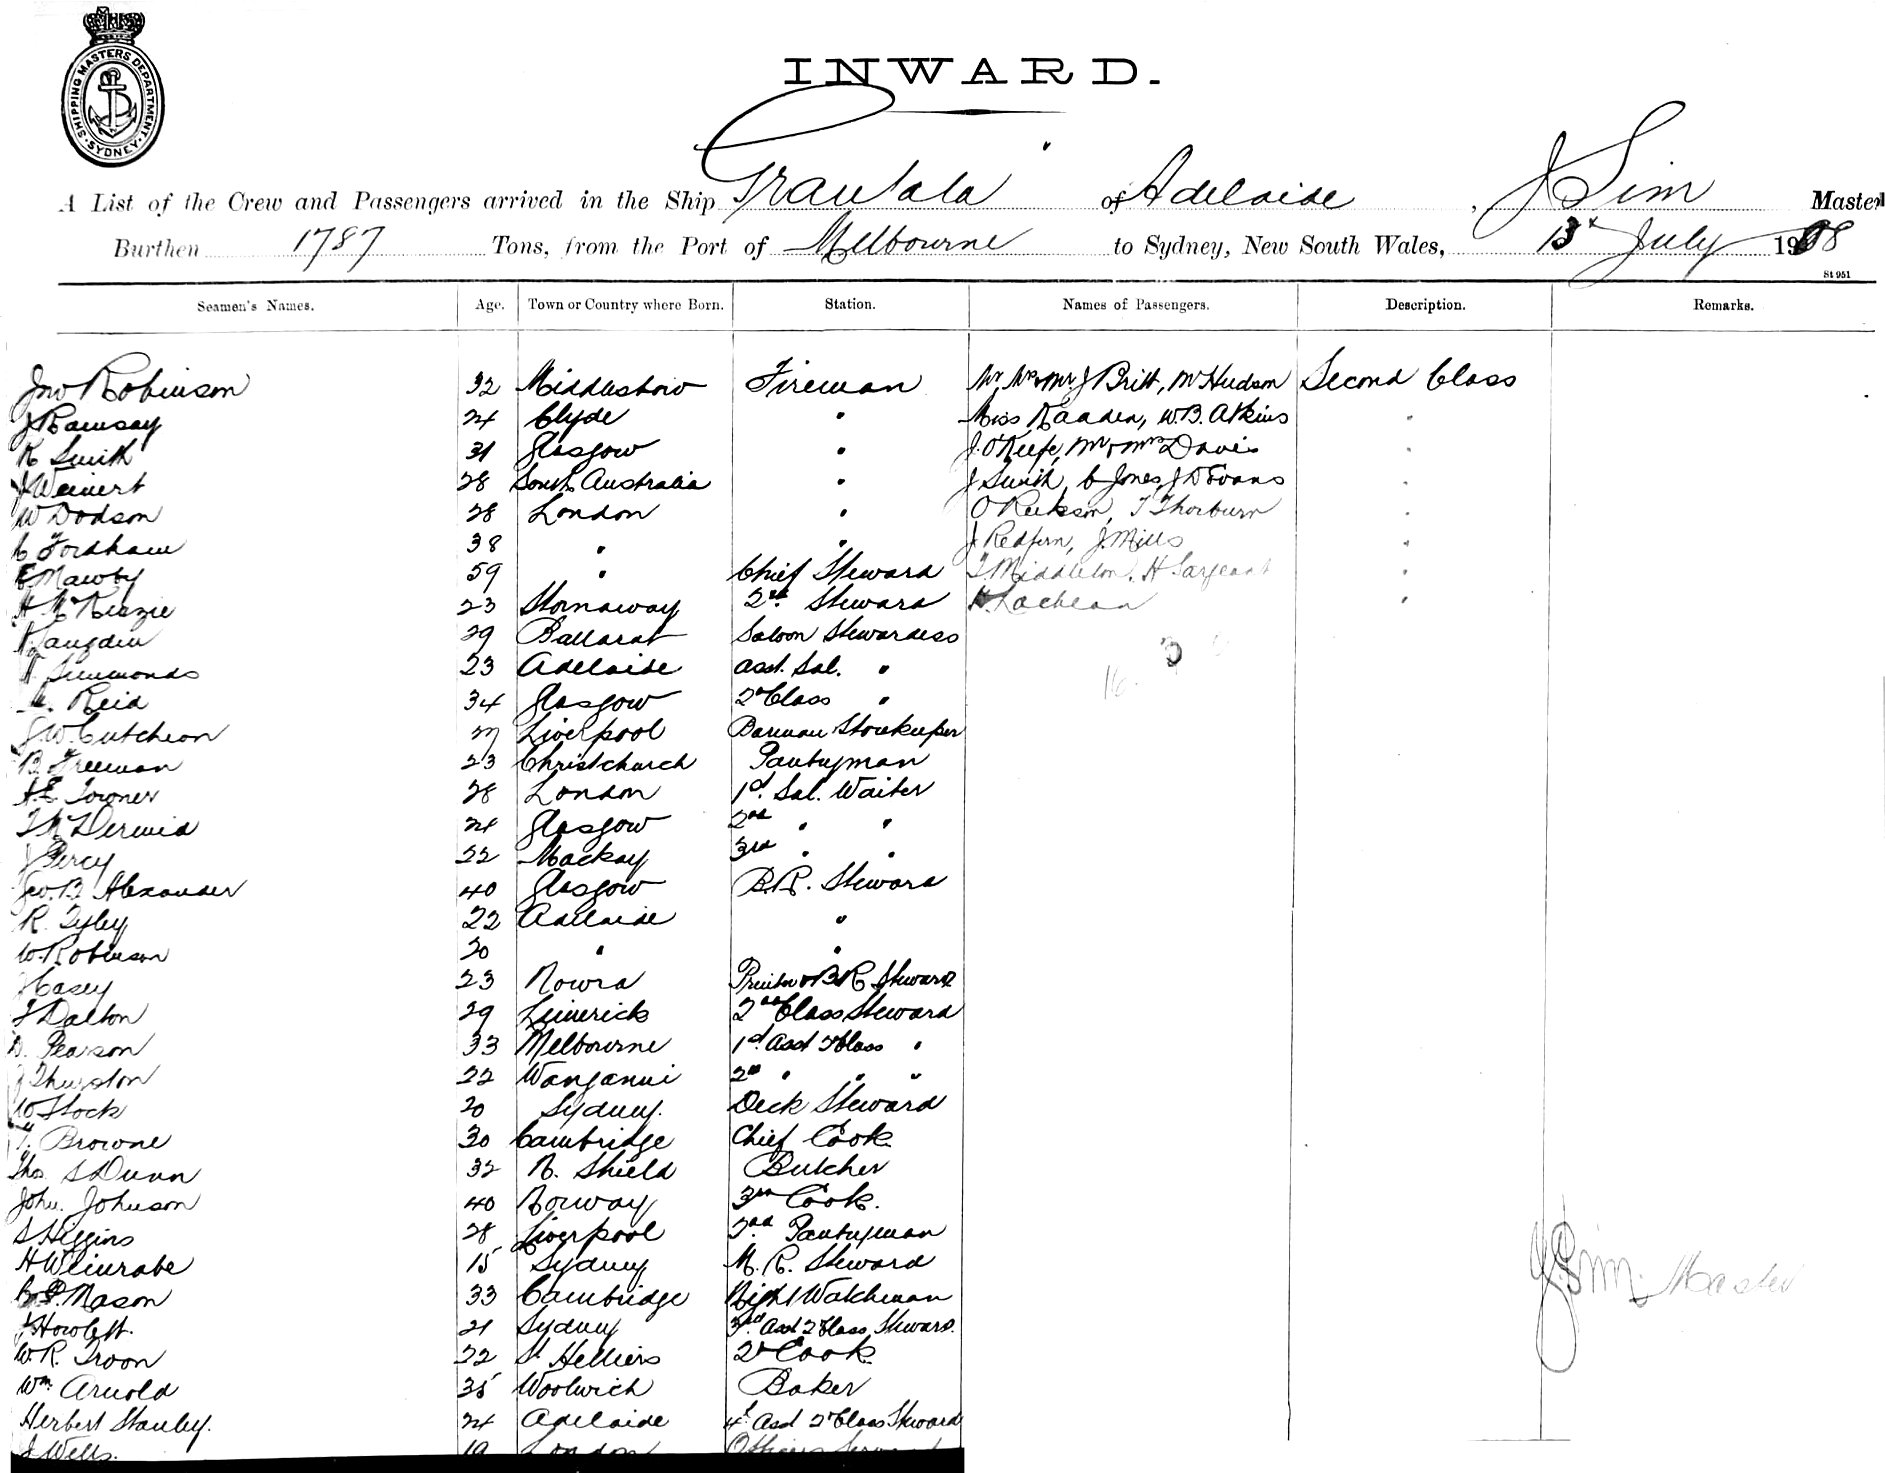 SHIPPING MASTERS DEPARTMENT SYDNEY
INWARD.
A List of the Crew and Passengers arrived in the Ship Grantala of Adelaide, J Sim Master
Burthen 1787 Tons, from the Port of Melbourne to Sydney, New South Wales, 13th July 1908
St 951
Seamen's Names. Age. Town or Country where Born. Station. Names of Passengers. Description. Remarks.
Jno Robinson 32 Middlesboro Fireman Mr Mrs & Mr J Britt, Mr Hudson Second Class
J Ramsay 24 Clyde " Miss W.B. Atkins "
R Smith 31 Glasgow " J. O'Keefe, Mr & Mrs Davis "
J Weinert 28 South Australia " J Smith, C Jones, J D Evans "
W Dodson 28 London " O T Thorburn "
C Fordham 38 " " J Redfern, J. Mills "
E Mawby 59 " Chief Steward T Middleton, H Sargeant "
H McKenzie 23 Stornaway 2nd Steward H. Lachlan "
Langdon 29 Ballarat Saloon Stewardess
H Simmonds 23 Adelaide Asst. Sal. "
Reid 34 Glasgow 2nd Class " 16.
J W. Cutcheon 27 Liverpool Barman Storekeeper
B Freeman 23 Christchurch Pantryman
A.E. Towner 28 London 1st. Sal. Waiter
T McDermid 24 Glasgow 2nd " "
J Percy 22 Mackay 3rd " "
Geo. B. Alexander 40 Glasgow B.R. Steward
R. Tyley 22 Adelaide "
W. Robinson 20 " "
Casey 23 Nowra Printer & B R Steward
T Dalton 29 Limerick 2nd Class Steward
D. Pearson 33 Melbourne 1st Asst 2nd Class "
J Thurston 22 Wanganui 2nd " " "
W Stock 20 Sydney. Deck Steward
T. Browne 30 Cambridge Chief Cook
Thos S Dunn 32 N. Shield Butcher
John Johnson 40 Norway 3rd Cook.
S Higgins 28 Liverpool 2nd Pantryman
H Weinrabe 15 Sydney M. R. Steward
Mason 33 Cambridge Night Watchman
J Howlett. 21 Sydney 3rd Asst 2 Class Steward.
W. R. Troon 22 St Helliers 2nd Cook
Wm. Arnold 35 Woolwich Baker
Herbert Stanley. 24 Adelaide 4th Asst 2nd Class Steward
J Wells. 19 London Officers Servant
J. Sim. Master